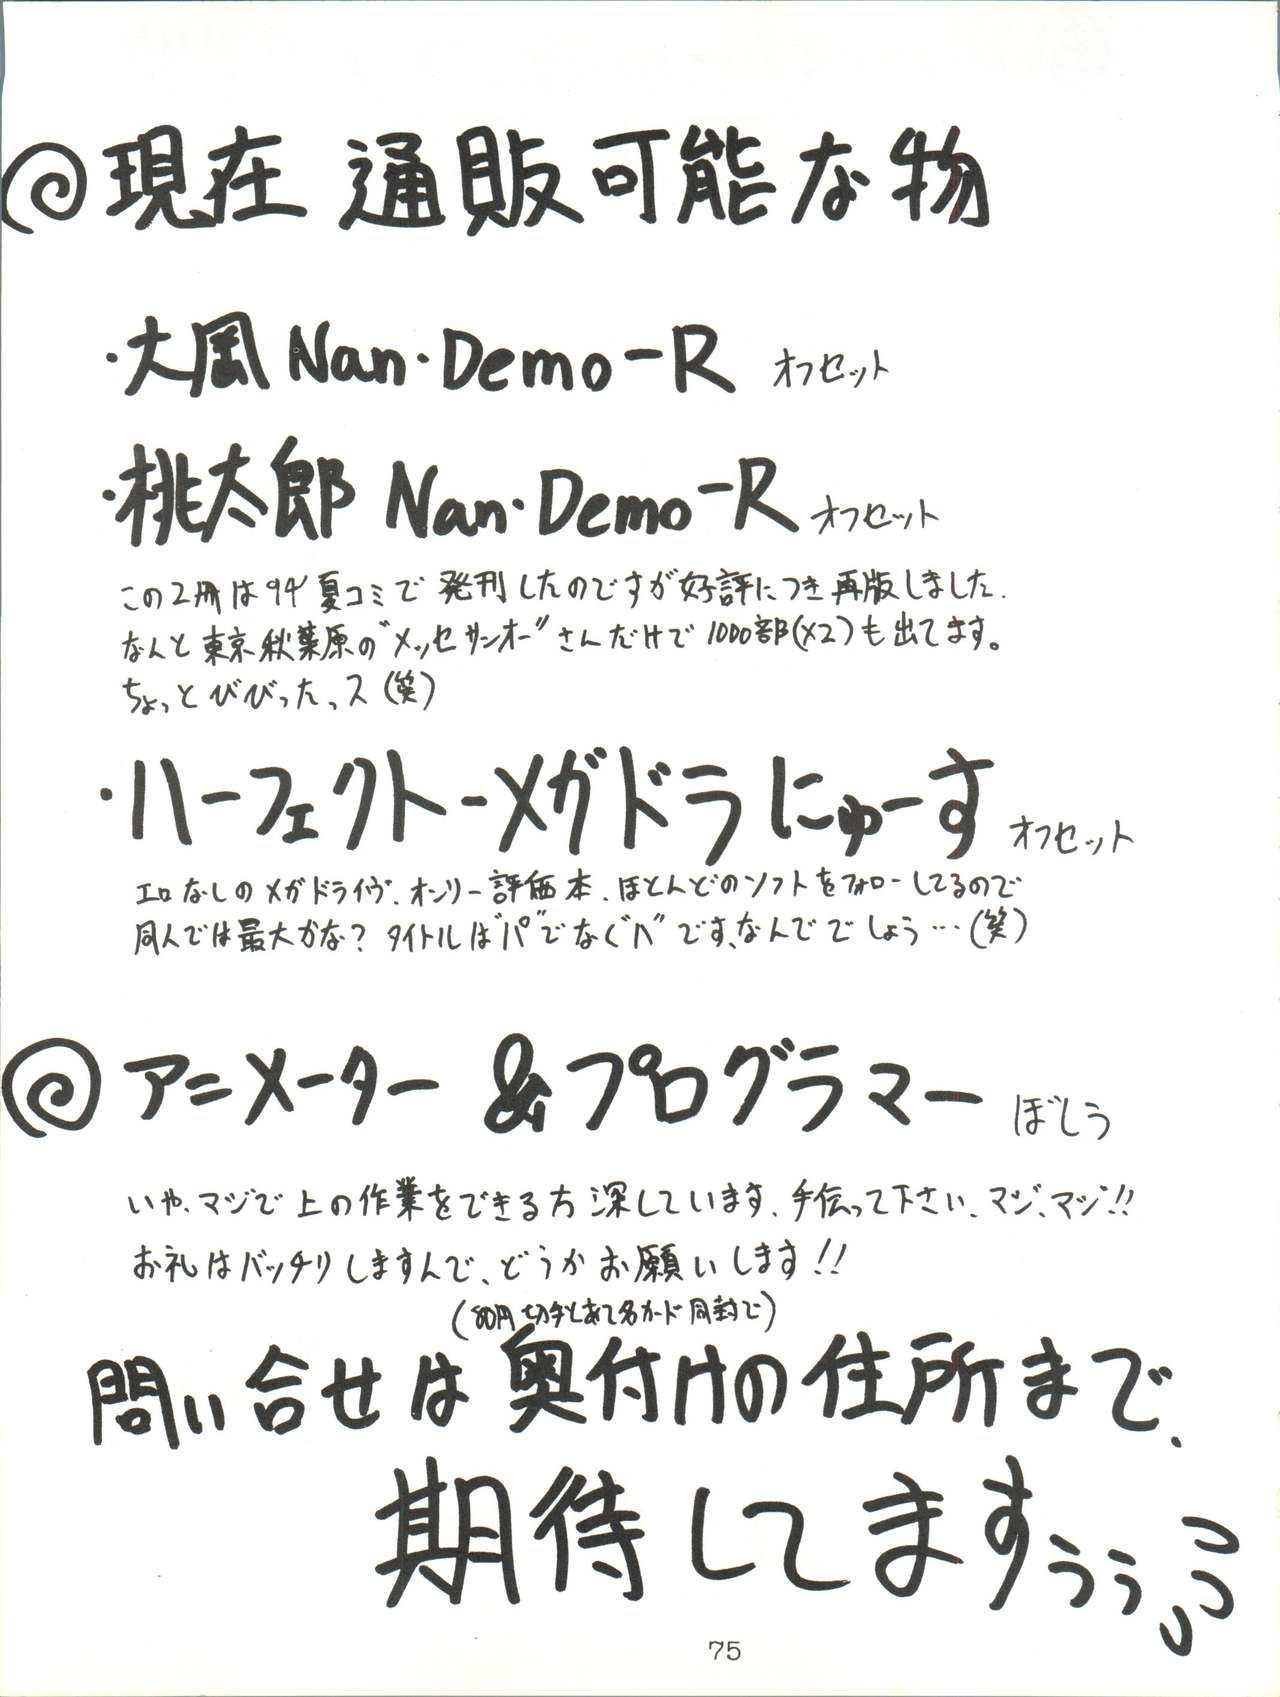 現在 通販可能な物
・大岡 Nan・Demo-R オフセット
・桃太郎 Nan・Demo-R オフセット
この2冊は94'夏コミで発刊したのですが好評につき再版しました.
なんと東京秋葉原の"メッセサンオー"さんだけで1000部(×2)も出てます。
ちょっとびびったっス(笑)
・ハーフェクト-メガドラにゅーす オフセット
エロなしのメガドライヴ.オンリー評価本.ほとんどのソフトをフォローしてるので
同人では最大かな?タイトルは"パ"でなく"ハ"です、なんででしょう…(笑)
アニメーター&プログラマー ぼしう
いや、マジで上の作業をできる方深しています.手伝って下さい、マジ、マジ!!
お礼はバッチリしますんで、どうかお願いします!!
(80円切手とあて名カード同封で)
問い合せは奥付けの住所まで.
期待してますぅぅ
75